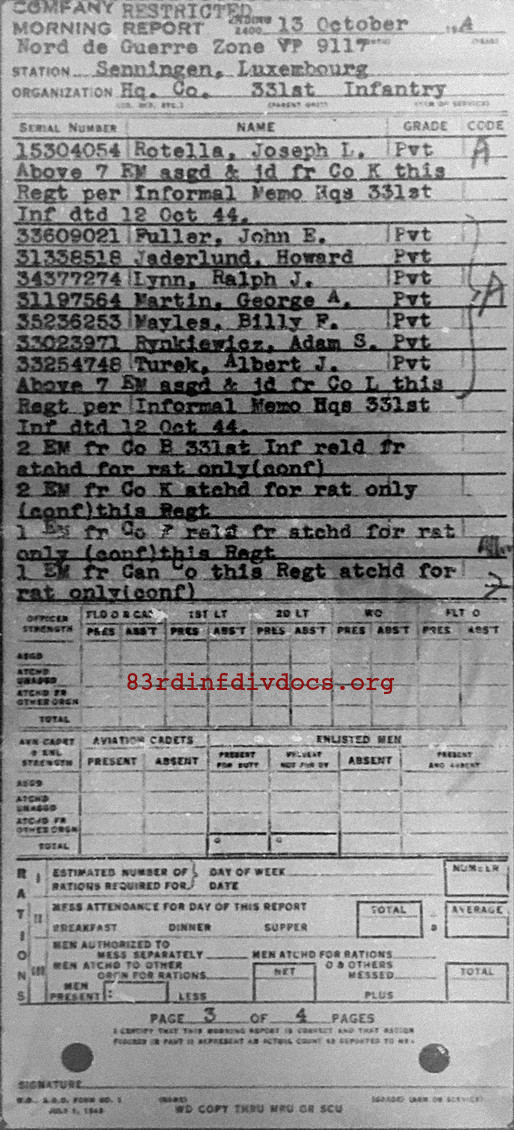 COMPANY RESTRICTED
MORNING REPORT ENDING 2400 13 October 194
Nord de Guerre Zone VP 9117
STATION Senningen, Luxembourg
ORGANIZATION Hq. Co. 331st Infantry
SERIAL NUMBER NAME GRADE CODE
15304054 Rotella, Joseph L. Pvt A
Above 7 EM asgd & jd fr Co K this
Regt per Informal Memo Hqs 331st
Inf dtd 12 Oct 44.
33609021 Fuller, John E. Pvt
31338518 Jaderlund, Howard Pvt
34377274 Lynn, Ralph J. Pvt
31197564 Martin, George A. Pvt A
35236253 Mayles, Billy F. Pvt
33023971 Rynkiewicz, Adam S. Pvt
33254748 Turek, Albert J. Pvt
Above 7 EM asgd & jd fr Co L this
Regt per Informal Memo Hqs 331st
Inf dtd 12 Oct 44.
2 EM fr Co B 331st Inf reld fr
atchd for rat only(conf)
2 EM fr Co K atchd for rat only
(conf)this Regt
1 EM fr Co F reld fr atchd for rat
only (conf)this Regt
1 EM fr Can Co this Regt atchd for
rat only(conf)
OFFICER STRENGTH FLD O & CAP 1ST LT 2D LT WO FLT O
PRES ABS'T PRES ABS'T PRES ABS'T PRES ABS'T PRES ABS'T
ASGD
ATCHD UNASGD
ATCHD FR OTHER ORGN
TOTAL
83rdinfdivdocs.org
AVN CADET & ENL STRENGTH AVIATION CADETS ENLISTED MEN
PRESENT ABSENT PRESENT FOR DUTY PRESENT NOT FOR DY ABSENT PRESENT AND ABSENT
ASGD
ATCHD UNASGD
ATCHD FR OTHER ORGN
TOTAL
RATIONS
I ESTIMATED NUMBER OF RATIONS REQUIRED FOR DAY OF WEEK DATE NUMBER
II MESS ATTENDANCE FOR DAY OF THIS REPORT TOTAL AVERAGE
BREAKFAST DINNER SUPPER
III MEN AUTHORIZED TO MESS SEPARATELY MEN ATCHD FOR RATIONS
MEN ATCHD TO OTHER ORGN FOR RATIONS NET O & OTHERS MESSED TOTAL
MEN PRESENT : LESS PLUS
PAGE 3 OF 4 PAGES
I CERTIFY THAT THIS MORNING REPORT IS CORRECT AND THAT RATION
SIGNATURE
W.D., A.G.O. FORM NO. 1
JULY 1, 1943
WD COPY THRU MRU OR SCU